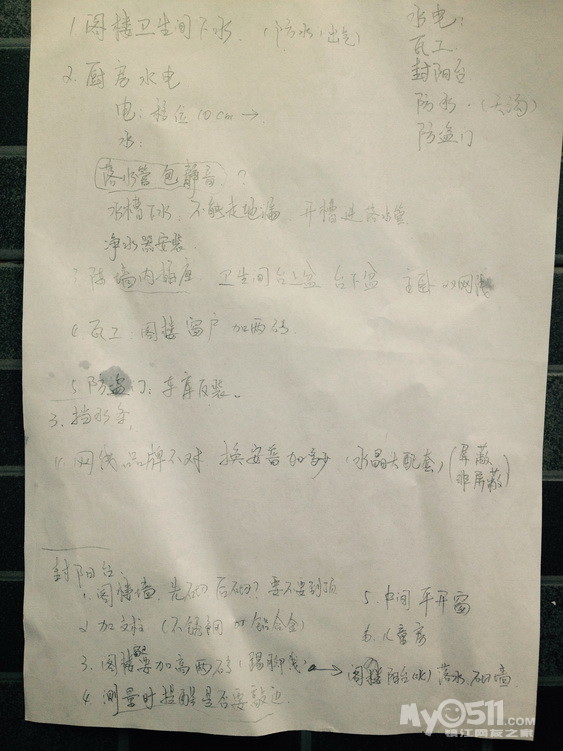 1 阁楼卫生间下水. (防水, 出气)
水电,
瓦工.
封阳台
防水. (天沟)
防盗门
2. 厨房水电
电: 移位 10cm →
水:
落水管包静音. ?
水槽下水. 不能走地漏 开槽进落水管
净水器安装.
隔墙内插座. 卫生间台上盆 台下盆
4 瓦工. 阁楼窗户 加两砖.
5. 防盗门; 车库反装。
3. 挡水条,
网线品牌不对 换安普加多少 (水晶头配套) (屏蔽
非屏蔽)
封阳台:
1. 阁楼墙. 先砌? 后砌? 要不要到顶
2 加立柱 (不锈钢 or 铝合金)
3. 阁楼 加高两砖 (踢脚线) ↔ 阁楼阳台(北) 落水. 砌墙
4. 测量时提醒是否要敲边
5. 中间 平开窗
6. 儿童房
My0511.com
镇江网友之家